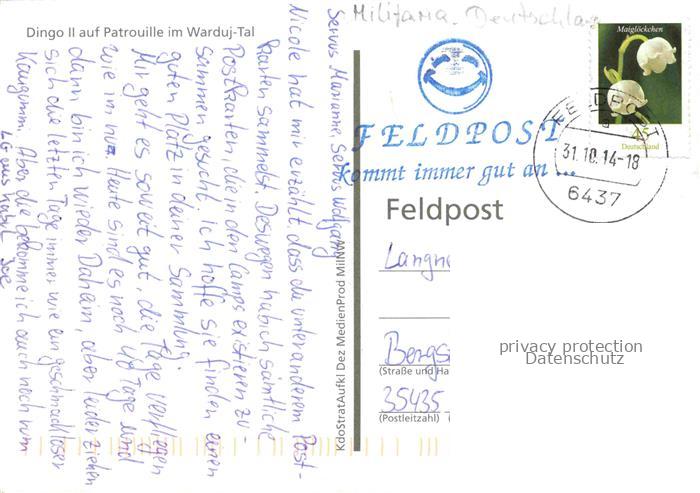 Dingo II auf Patrouille im Warduj-Tal
Servus Marianne, Servus Wolfgang
Nicole hat mir erzählt, dass du unter anderem Post-
karten sammelst. Deswegen hab ich sämtliche
Postkarten, die in den Camps existieren zu-
sammen gesucht. Ich hoffe sie finden einen
guten Platz in deiner Sammlung.
Mir geht es soweit gut, die Tage verfliegen
wie im nu. Heute sind es noch Tage und
dann bin ich wieder Daheim, aber leider ziehen
sich die letzten Tage immer wie ein geschmackloser
Kaugummi. Aber die bekomme ich auch noch rum
LG aus
KdoStratAufkl Dez MedienProd MilNW
Militaria - Deutschland
Maiglöckchen
45
Deutschland
FELDPOST
31.10.14-18
6437
FELDPOST
kommt immer gut an ...
Feldpost
Langn
Bergs
(Straße und Ha
35435
(Postleitzahl)
privacy protection
Datenschutz